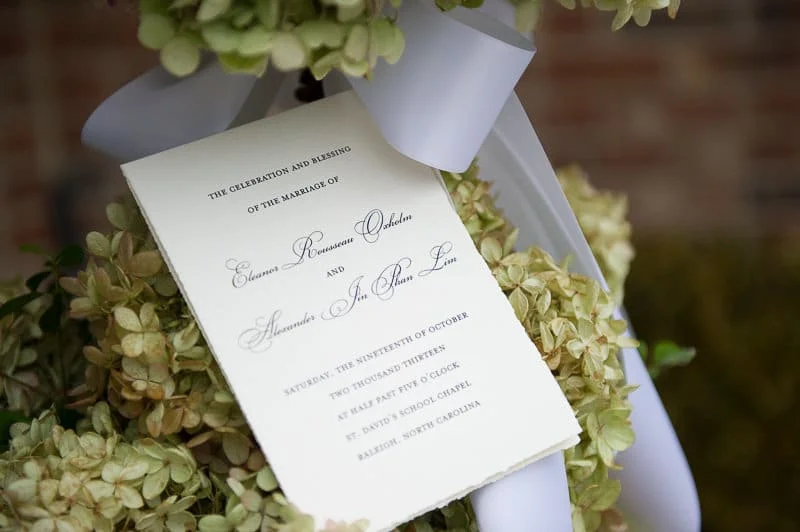 THE CELEBRATION AND BLESSING
OF THE MARRIAGE OF
Eleanor Rousseau Oxholm
AND
Alexander Jin Phan Lim
SATURDAY, THE NINETEENTH OF OCTOBER
TWO THOUSAND THIRTEEN
AT HALF PAST FIVE O'CLOCK
ST. DAVID'S SCHOOL CHAPEL
RALEIGH, NORTH CAROLINA